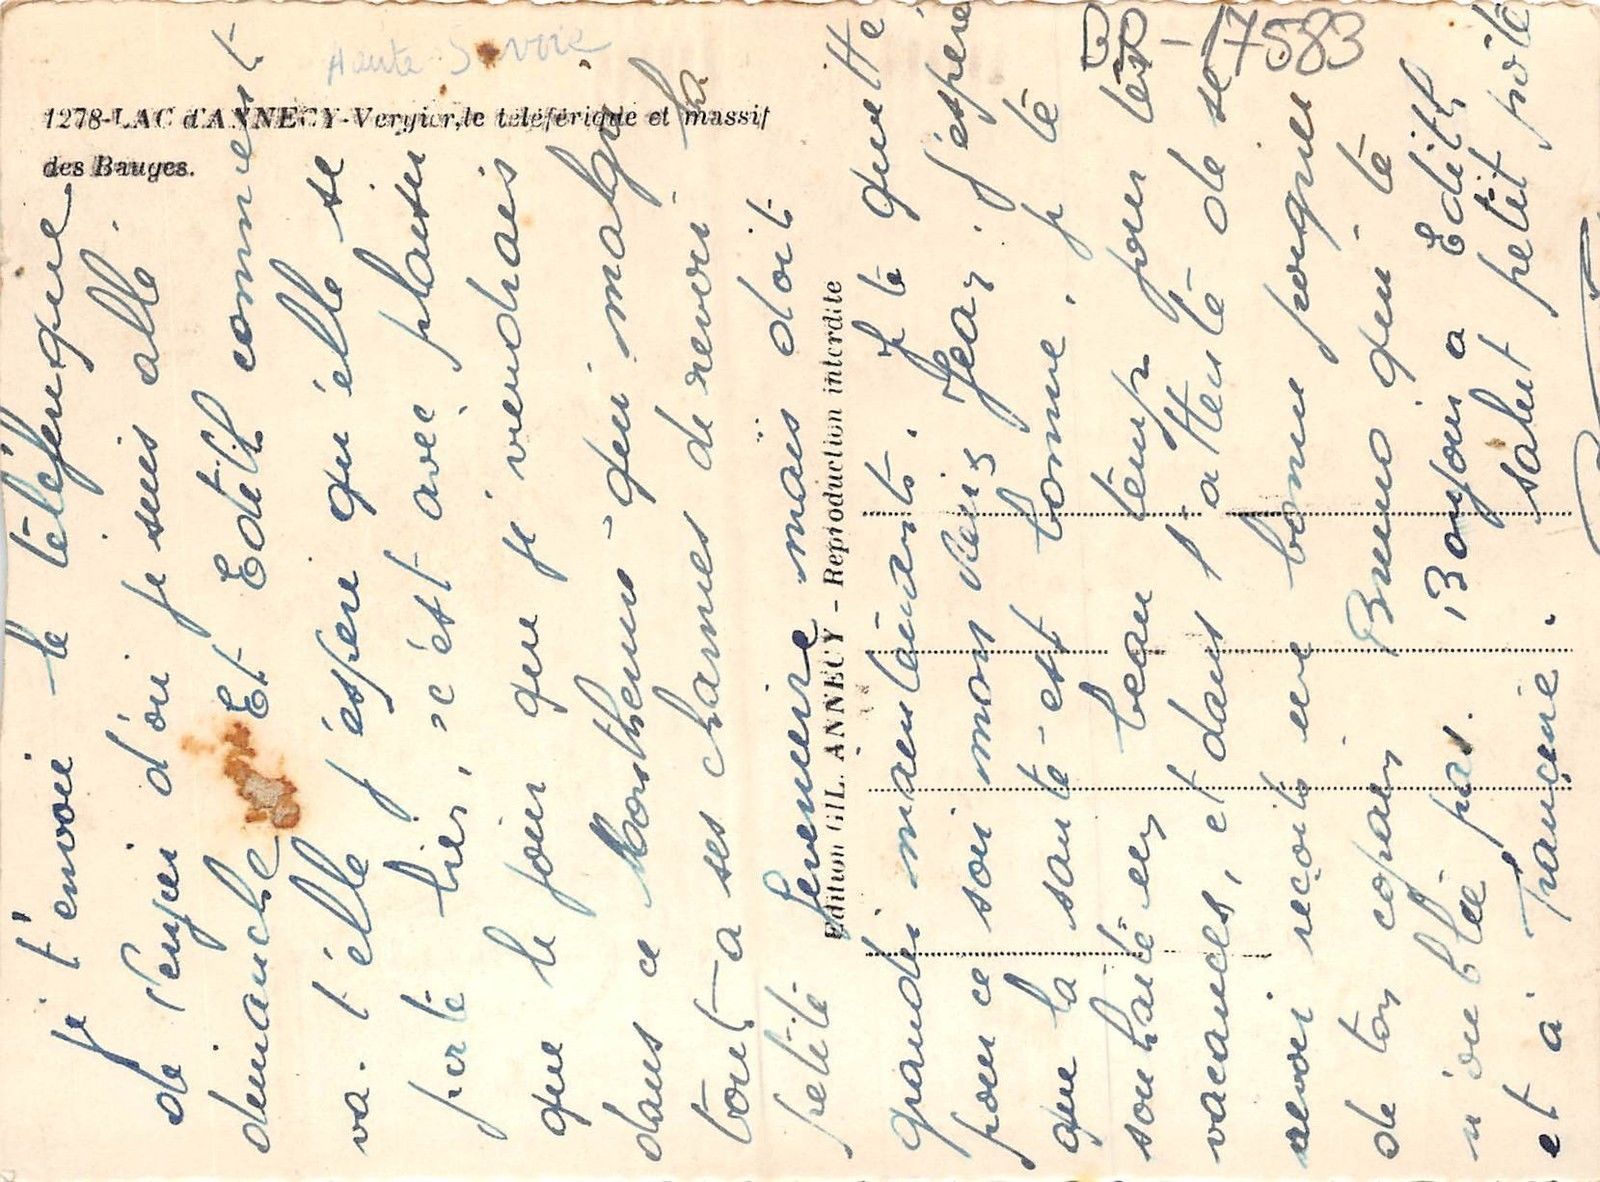 Haute Savoie
BP-17583
1278-LAC d'ANNECY-Veyrier, le téléférique et massif
des Bauges.
Edition GIL. ANNECY - Reproduction interdite
Je t'envoie le téléferique
de Veyrier d'ou je suis allé
dimanche. Et Edith comment
va. t'elle j'éspere qu'élle se
porte bien, c'ést avec plaisir
que le jour que je viendrais
dans ce Monthenis qui malgré
tout a ses charmes de revoir la
petite mais doit
grande maintenants. Je te quitte
pour ce soir mon vieus Jean j'éspere
que la santé est bonne. Je te
souhaite en beau temps pour tes
vacances, et dans l'attente de se
revoir recoits une bonne poignee
de ton copain Bruno qui te
n'oublie pas. Bonjour a Edith
et a Françine. salut petit pôte